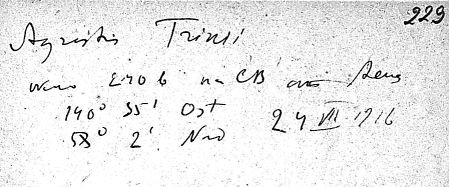 229
Agrostis Trinii
270 b на СВ
140° 35' Ost
58° 2' Nrd
24 VII 1916